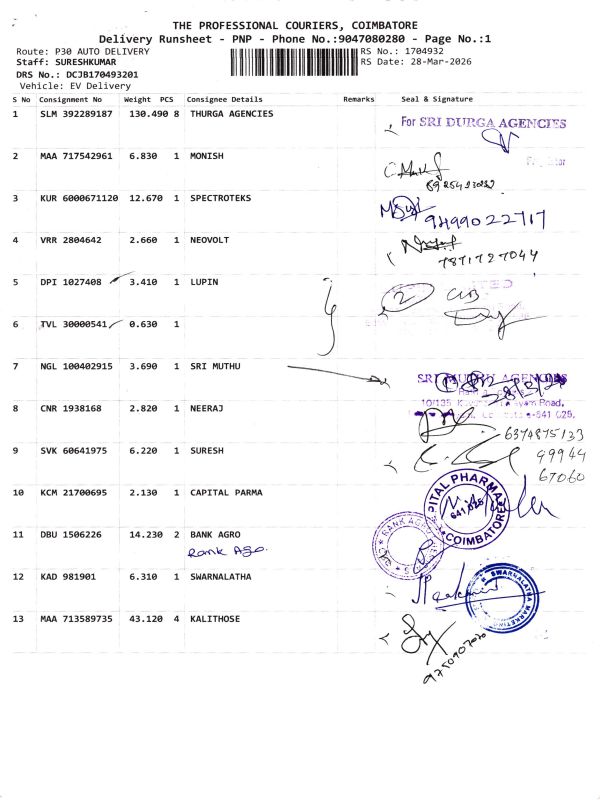 THE PROFESSIONAL COURIERS, COIMBATORE
Delivery Runsheet - PNP - Phone No.:9047080280 - Page No.:1
Route: P30 AUTO DELIVERY
RS No.: 1704932
Staff: SURESHKUMAR
RS Date: 28-Mar-2026
DRS No.: DCJB170493201
Vehicle: EV Delivery
S No Consignment No Weight PCS Consignee Details Remarks Seal & Signature
1 SLM 392289187 130.490 8 THURGA AGENCIES
For SRI DURGA AGENCIES
2 MAA 717542961 6.830 1 MONISH
3 KUR 6000671120 12.670 1 SPECTROTEKS
9499022717
4 VRR 2804642 2.660 1 NEOVOLT
7871727044
5 DPI 1027408 3.410 1 LUPIN
2
6 TVL 30000541 0.630 1
7 NGL 100402915 3.690 1 SRI MUTHU
SRI MUTHU AGENCIES
8 CNR 1938168 2.820 1 NEERAJ
6374875133
9 SVK 60641975 6.220 1 SURESH
99944
67060
10 KCM 21700695 2.130 1 CAPITAL PARMA
PITAL PHARMA
641 025
COIMBATORE
11 DBU 1506226 14.230 2 BANK AGRO
RANK AGRO
Rank Ago.
12 KAD 981901 6.310 1 SWARNALATHA
SWARNALATHA MARKETING
13 MAA 713589735 43.120 4 KALITHOSE
9750907070